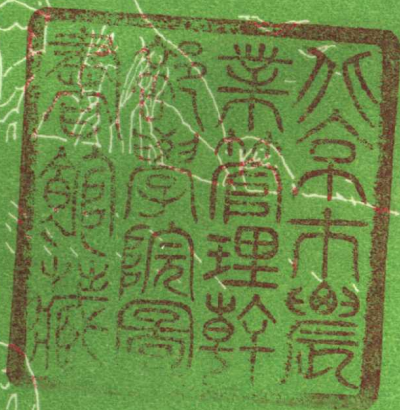 北京市農
業管理幹
部學院圖
書館藏